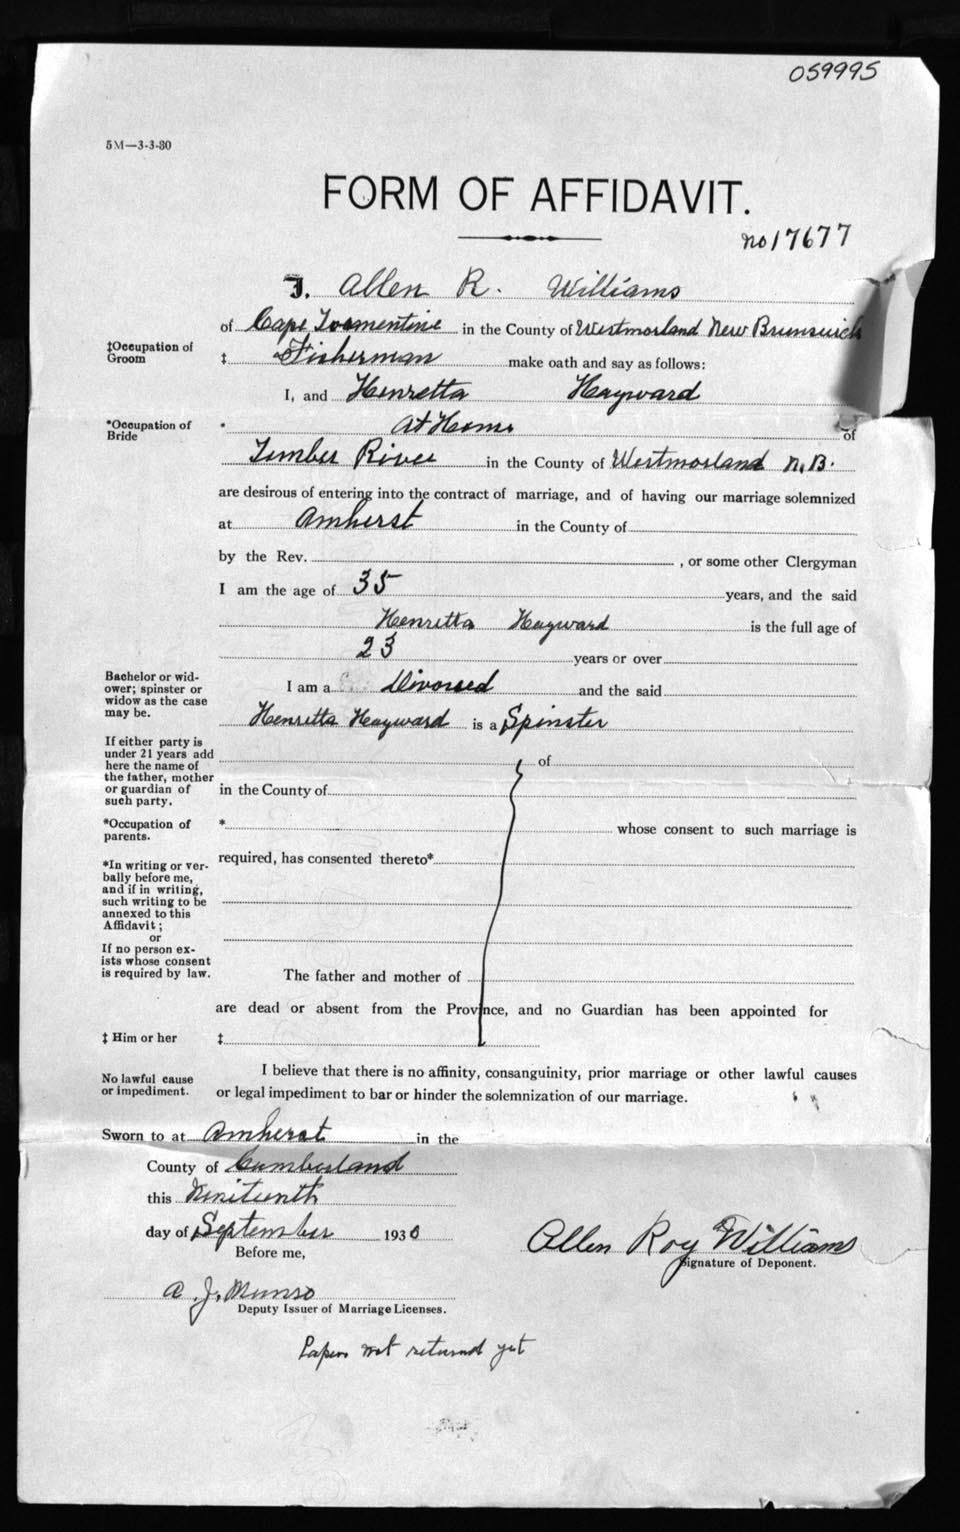 059995
5M—3-3-30
FORM OF AFFIDAVIT.
no 17677
I, Allen R. Williams
of Cape Tormentine in the County of Westmorland New Brunswick
‡Occupation of Groom ‡ Fisherman make oath and say as follows:
I, and Henretta Hayward
*Occupation of Bride * At Home of
Timber River in the County of Westmorland N.B.
are desirous of entering into the contract of marriage, and of having our marriage solemnized
at Amherst in the County of
by the Rev. , or some other Clergyman
I am the age of 35 years, and the said
Henretta Hayward is the full age of
23 years or over
Bachelor or wid-
ower; spinster or
widow as the case
may be.
I am a Divorsed and the said
Henretta Hayward is a Spinster
If either party is
under 21 years add
here the name of
the father, mother
or guardian of
such party.
of
in the County of
*Occupation of
parents.
* whose consent to such marriage is
required, has consented thereto*
*In writing or ver-
bally before me,
and if in writing,
such writing to be
annexed to this
Affidavit;
or
If no person ex-
ists whose consent
is required by law.
The father and mother of
are dead or absent from the Province, and no Guardian has been appointed for
‡ Him or her ‡
No lawful cause
or impediment.
I believe that there is no affinity, consanguinity, prior marriage or other lawful causes
or legal impediment to bar or hinder the solemnization of our marriage.
Sworn to at Amherst in the
County of Cumberland
this Nineteenth
day of September 1930
Before me,
Allen Roy Williams
Signature of Deponent.
A. J. Munro
Deputy Issuer of Marriage Licenses.
Papers not returned yet